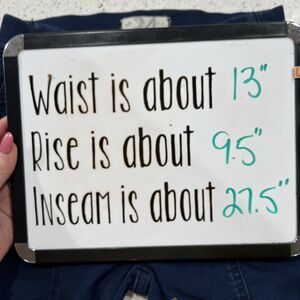 Waist is about 13"
Rise is about 9.5"
Inseam is about 27.5"